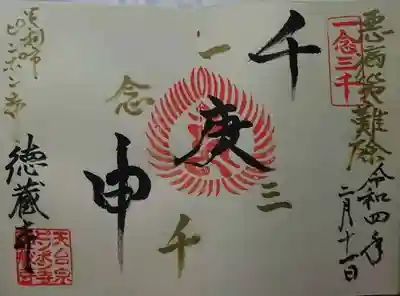 悪病災難除
令和四年
二月十一日
一念三千
千
庚
申
一
念
三
千
ピンポン寺
徳蔵寺